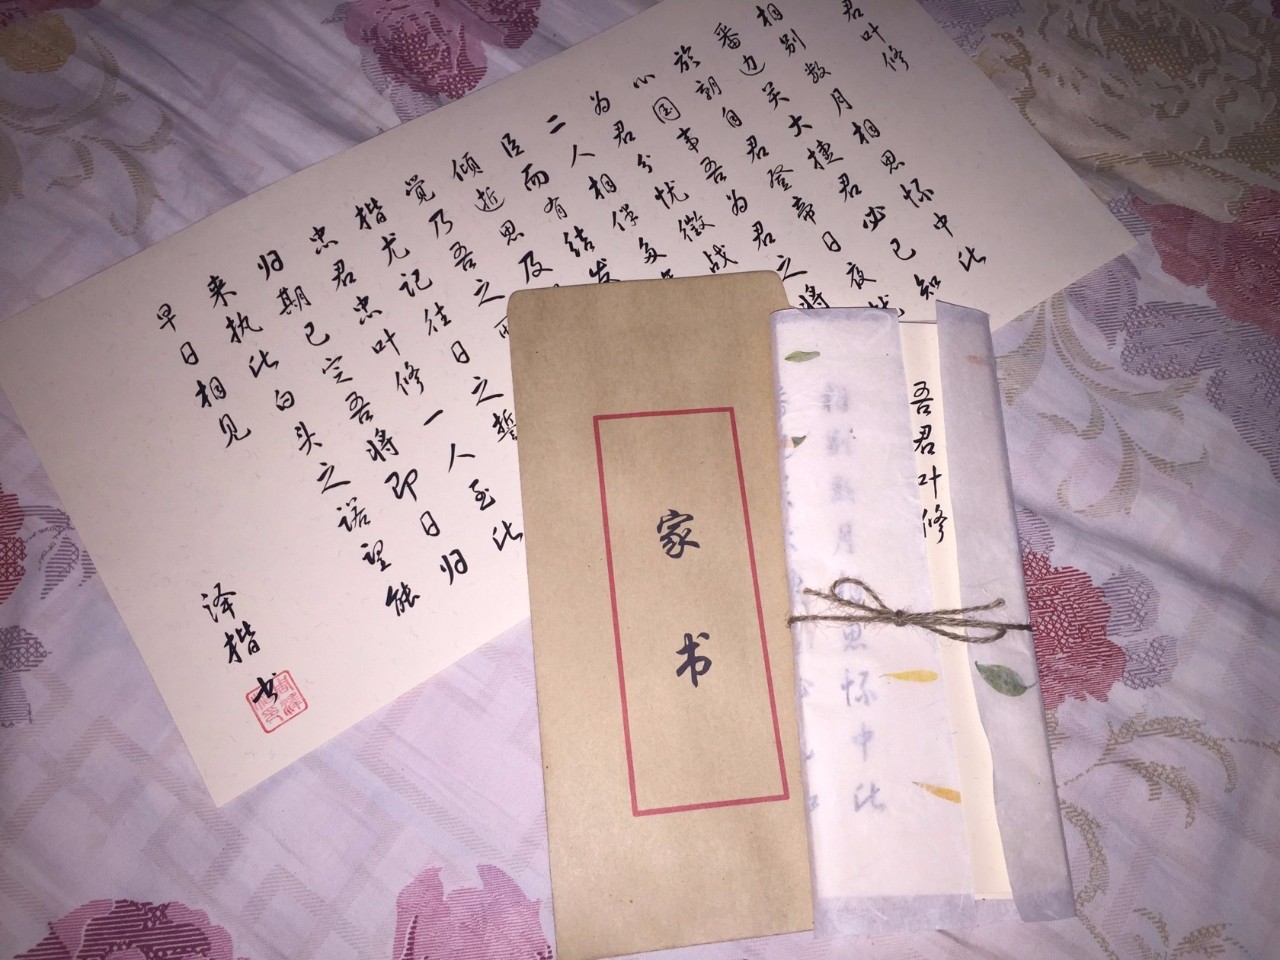 君叶修
相别数月相思怀中此
番边关大捷君必已知
於朝自君登帝日夜
心国事吾为君之将
为君分忧征战
二人相伴多年
臣而有结发
倾逝思及
觉乃吾之所
楷尤记往日之誓
忠君忠叶修一人至此
归期已定吾将即日归
来执此白头之诺望能
早日相见
泽楷书
家书
吾君叶修
相别数月相思怀中此